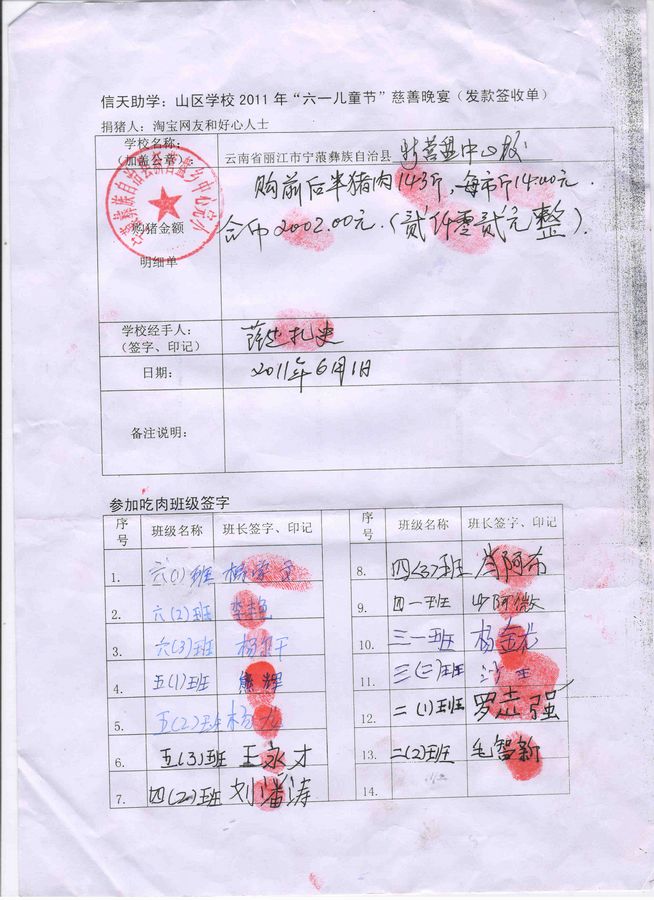 信天助学：山区学校2011年“六一儿童节”慈善晚宴（发款签收单）
捐猪人：淘宝网友和好心人士
学校名称：
（加盖公章）：
云南省丽江市宁蒗彝族自治县 中心校
购前后半猪肉143斤，每市斤14.00元．
合币2002.00元．（贰仟零贰元整）．
购猪金额
明细单
学校经手人：
（签字、印记）
日期：
2011年6月1日
备注说明：
参加吃肉班级签字
序号 班级名称 班长签字、印记
1. 六(1)班
2. 六(2)班
3. 六(3)班
4. 五(1)班 熊辉
5. 五(2)班
6. 五(3)班 王永才
7. 四(2)班 刘潘涛
序号 班级名称 班长签字、印记
8. 四(3)班 肖阿布
9. 四一班
10. 三一班 杨金龙
11. 三(三)班
12. 二(1)班 罗志强
13. 二(2)班 毛智新
14.